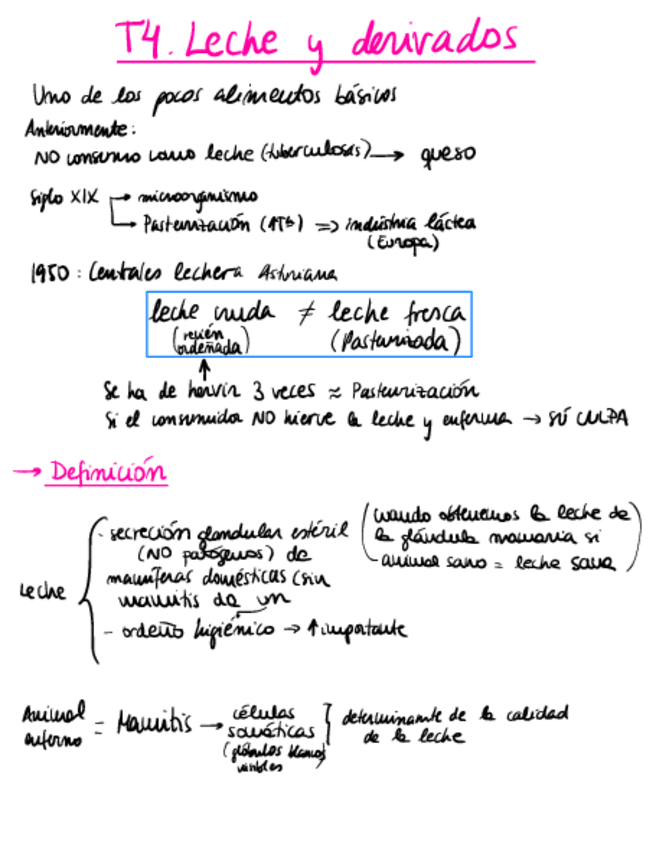 T4. Leche y derivados
Uno de los pocos alimentos básicos
Anteriormente:
NO consumo como leche (tuberculosis) → queso
Siglo XIX → microorganismo
→ Pasteurización (ATb) => industria láctea
(Europa)
1950: Centrales lechera Asturiana
leche cruda ≠ leche fresca
(recién ordeñada) (Pasteurizada)
Se ha de hervir 3 veces ≈ Pasteurización
Si el consumidor NO hierve la leche y enferma → SÚ CULPA
→ Definición
Leche
- secreción glandular estéril
(NO patógenos) de
mamíferas domésticas (sin
mamitis de un
- ordeño higiénico → ↑ importante
(cuando obtenemos la leche de
la glándula mamaria si
animal sano = leche sana)
Animal enfermo = Mamitis → células
somáticas
(glóbulos blancos)
visibles
determinante de la calidad
de la leche